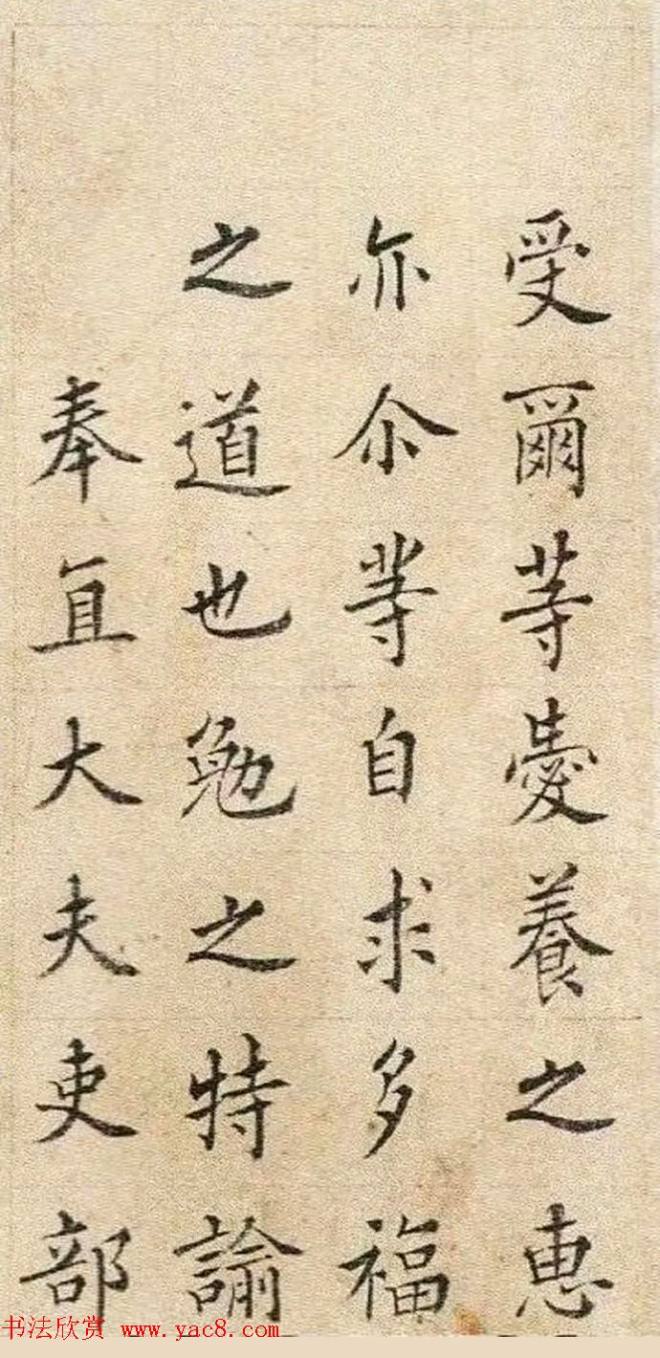 受爾等憂養之恵
亦尒等自求多福
之道也勉之特諭
奉直大夫吏部
书法欣赏 www.yac8.com